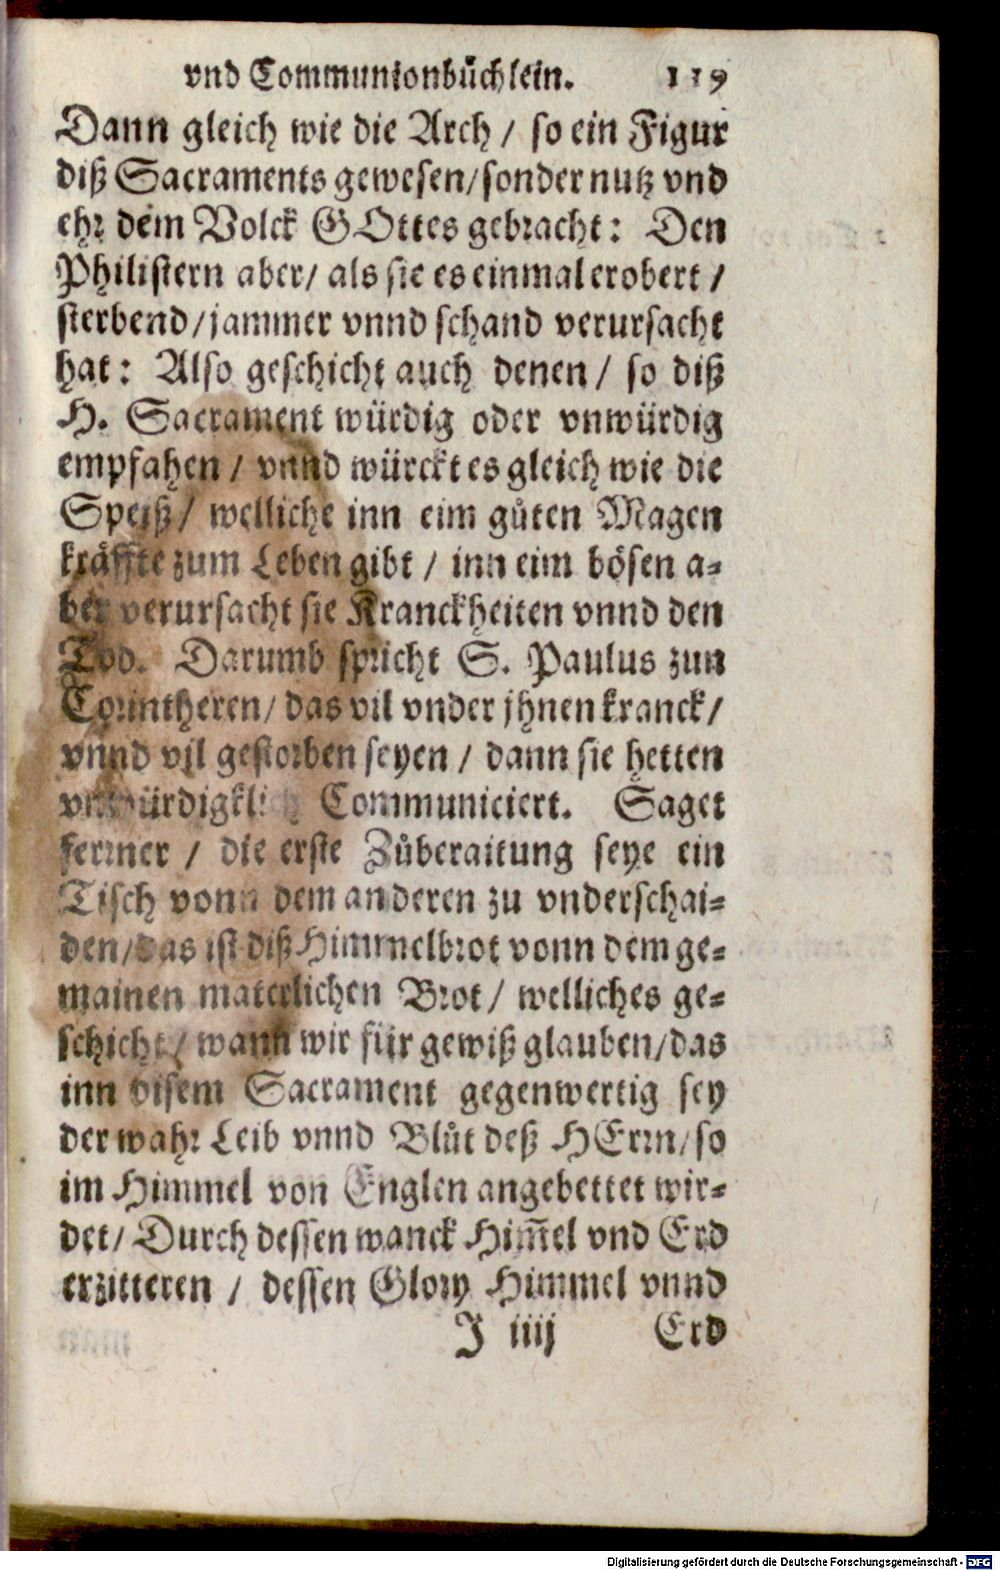 vnd Communionbüchlein. 119
Dann gleich wie die Arch / so ein Figur
diß Sacraments gewesen/sonder nutz vnd
ehr dem Volck GOttes gebracht: Den
Philistern aber/ als sie es einmal erobert /
sterbend/jammer vnnd schand verursacht
hat: Also geschicht auch denen / so diß
H. Sacrament würdig oder vnwürdig
empfahen / vnnd würckt es gleich wie die
Speiß/ welliche inn eim gůten Magen
kräffte zum Leben gibt / inn eim bösen a-
ber verursacht sie Kranckheiten vnnd den
Tod. Darumb spricht S. Paulus zun
Corintheren/ das vil vnder jhnen kranck/
vnnd vil gestorben seyen / dann sie hetten
vnwürdigklich Communiciert. Saget
ferrner / die erste Zůberaitung seye ein
Tisch vonn dem anderen zu vnderschai-
den/das ist diß Himmelbrot vonn dem ge-
mainen materlichen Brot/ welliches ge-
schicht / wann wir für gewiß glauben/das
inn disem Sacrament gegenwertig sey
der wahr Leib vnnd Blůt deß HErrn/so
im Himmel von Englen angebettet wir-
det/ Durch dessen wanck Him̃el vnd Erd
erzitteren / dessen Glory Himmel vnnd
J iiij Erd
Digitalisierung gefördert durch die Deutsche Forschungsgemeinschaft - DFG